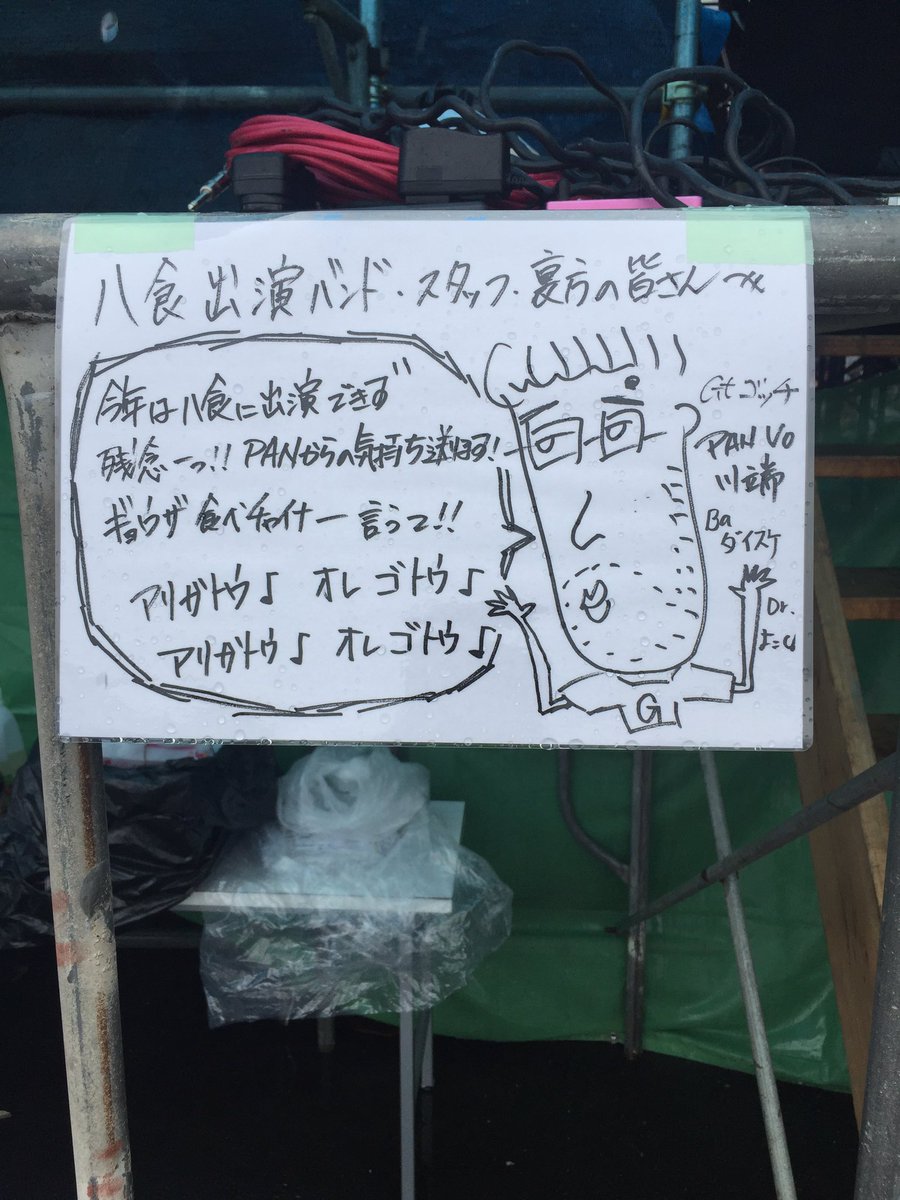 八食 出演バンド・スタッフ・裏方の皆さんへ
今年は八食に出演できず
残念ーっ!! PANからの気持ち送ります!
ギョウザ 食べチャイナー 言うて!!
アリガトウ♪ オレゴトウ♪
アリガトウ♪ オレゴトウ♪
Gt ゴッチ
PAN Vo
川さん端
Ba
ダイスケ
Dr.
よこしん
G